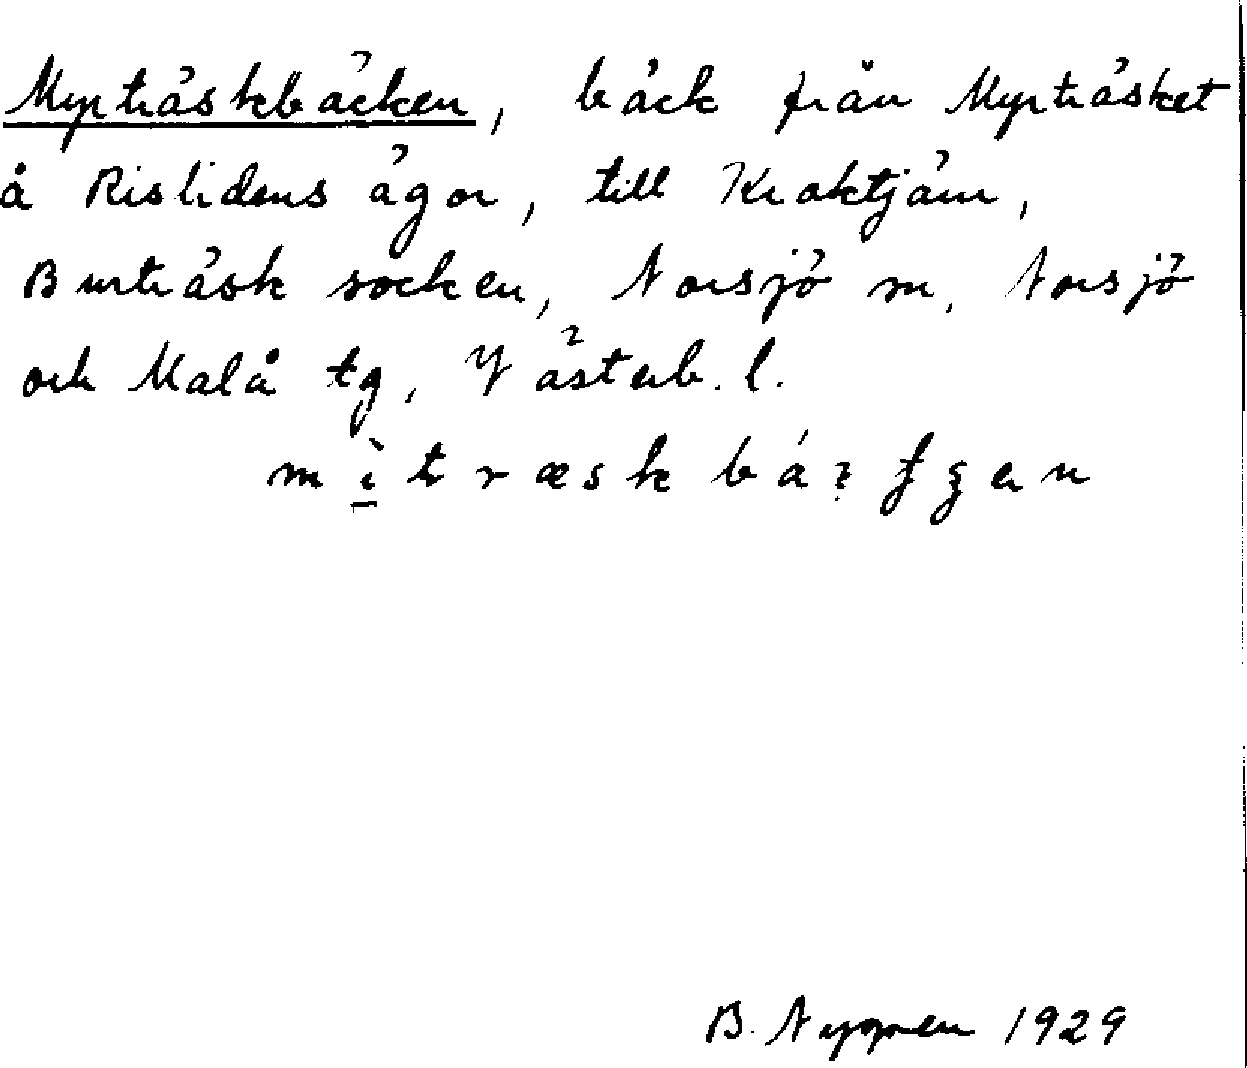 Myrträskbäcken, bäck från Myrträsket
å Rislidens ägor, till Kroktjärn,
Burträsk socken, Norsjö m. Norsjö
och Malå tg, Västerb. l.
B. Nygren 1929